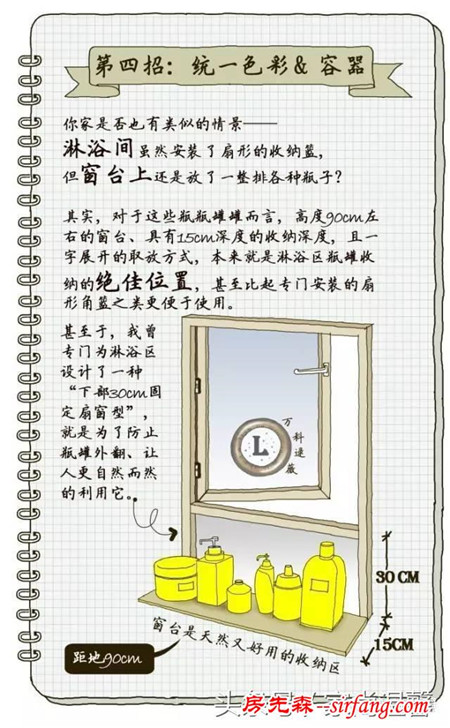 第四招：统一色彩& 容器
你家是否也有类似的情景——
淋浴间虽然安装了扇形的收纳篮，
但窗台上还是放了一整排各种瓶子？
其实，对于这些瓶瓶罐罐而言，高度90cm左
右的窗台、具有15cm深度的收纳深度，且一
字展开的取放方式，本来就是淋浴区瓶罐收
纳的绝佳位置，甚至比起专门安装的扇
形角篮之类更便于使用。
甚至于，我曾
专门为淋浴区
设计了一种
“下部30cm固
定扇窗型”，
就是为了防止
瓶罐外翻、让
人更自然而然
的利用它。
万科逯薇
L
30 CM
15CM
窗台是天然又好用的收纳区
距地90cm
房先森-sirfang.com